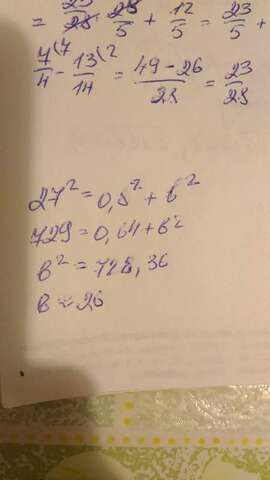 = 23/28 28/5 + 12/5 = 23/5 +
7/4 (7 - 13/14 (2 = 49-26/28 = 23/28
27² = 0,8² + b²
729 = 0,64 + b²
b² = 728,36
b = 26